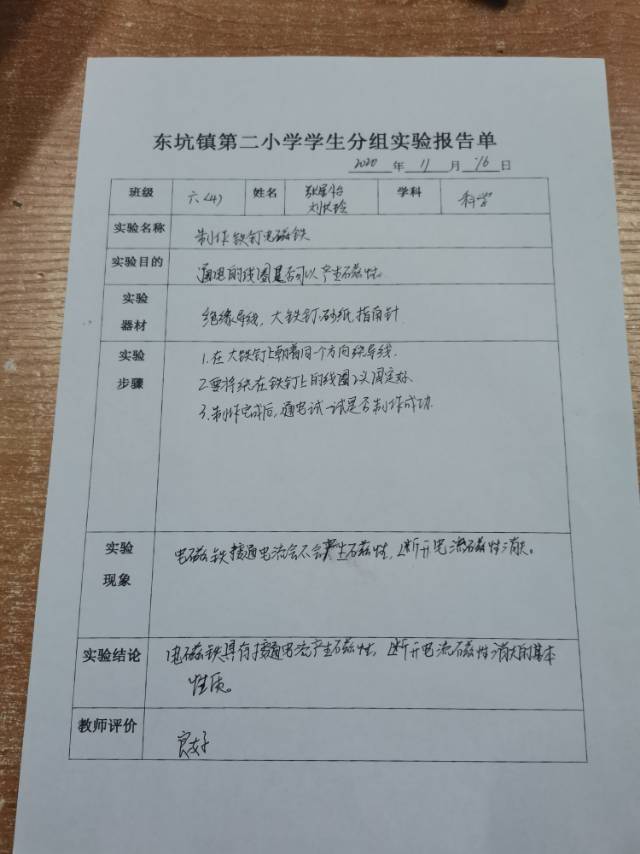 东坑镇第二小学学生分组实验报告单
2020 年 11 月 16 日
班级 六(4) 姓名 学科 科学
实验名称 制作铁钉电磁铁
实验目的 通电的线圈是否可以产生磁性。
实验器材 绝缘导线,大铁钉,砂纸,指南针
实验步骤 1.在大铁钉上朝着同一个方向绕导线.
2.要将绕在铁钉上的线圈固定好.
3.制作完成后,通电试一试是否制作成功.
实验现象 电磁铁接通电流会不会产生磁性,断开电流磁性消失。
实验结论 电磁铁具有接通电流产生磁性,断开电流磁性消失的基本
性质。
教师评价 良好